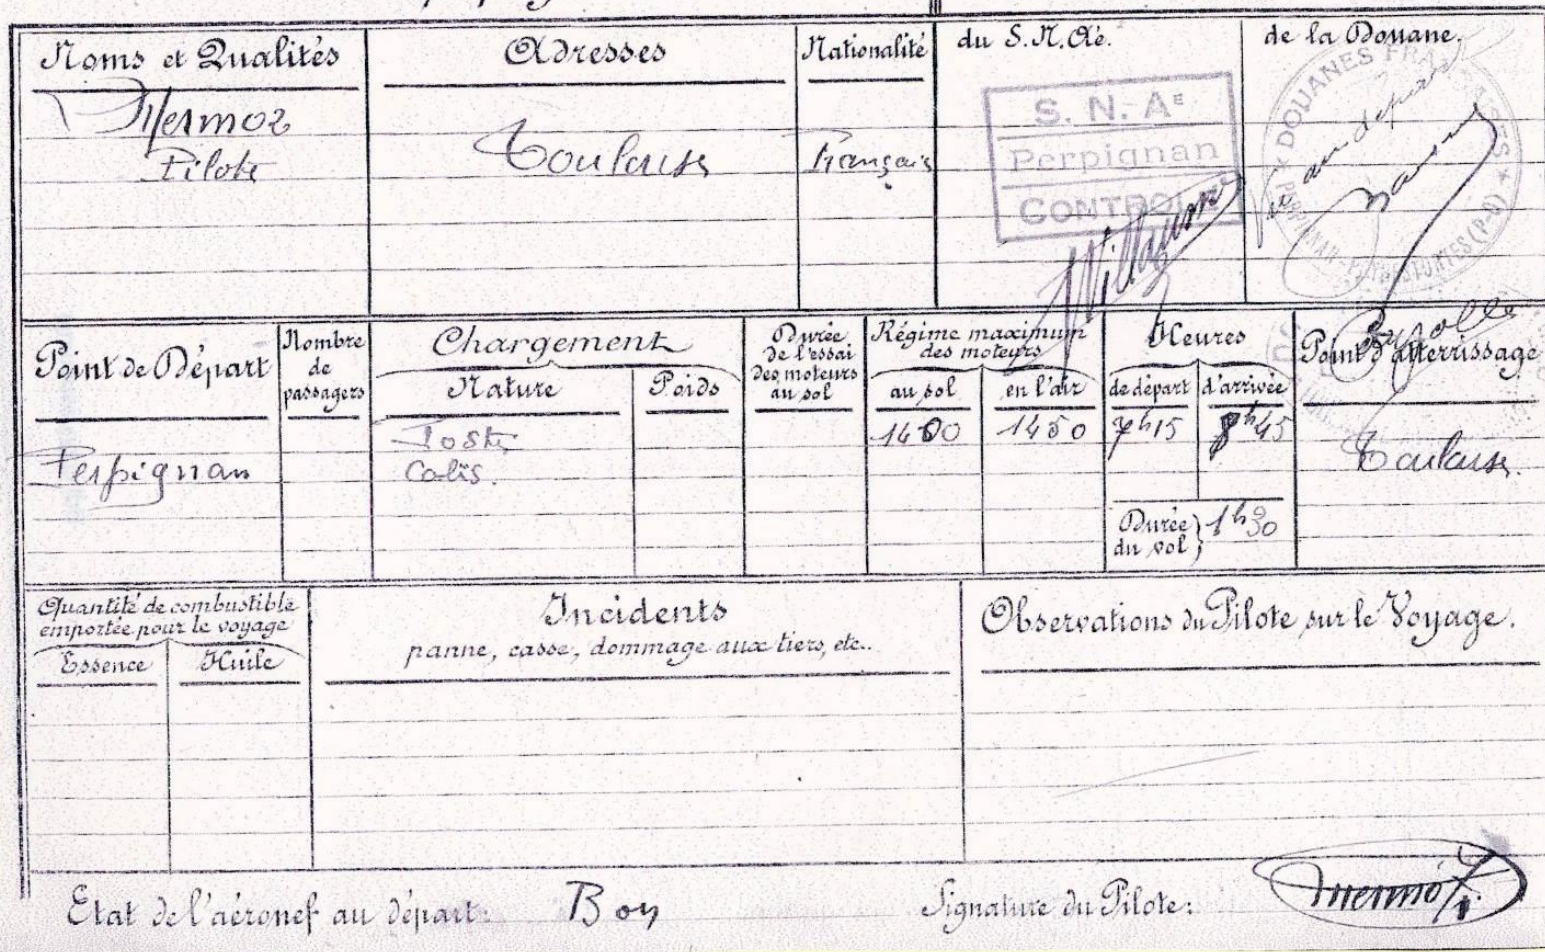 Noms et Qualités
Adresses
Nationalité
du S.N.Aé.
de la Douane.
Mermoz
Pilote
Toulouse
Français
S. N. Aᴱ
Perpignan
CONTROLE
DOUANES FRANÇAISES
vu au départ
Point de Départ
Nombre
de
passagers
Chargement
Nature
Poids
Durée
de l'essai
des moteurs
au sol
Régime maximum
des moteurs
au sol
en l'air
Heures
de départ
d'arrivée
Point d'atterrissage
Perpignan
Poste
Colis.
1400
1450
7h15
8h45
Toulouse.
Durée
du vol
1h30
Quantité de combustible
emportée pour le voyage
Essence
Huile
Incidents
panne, casse, dommage aux tiers, etc..
Observations du Pilote sur le Voyage.
Etat de l'aéronef au départ:
Bon
Signature du Pilote:
Mermoz